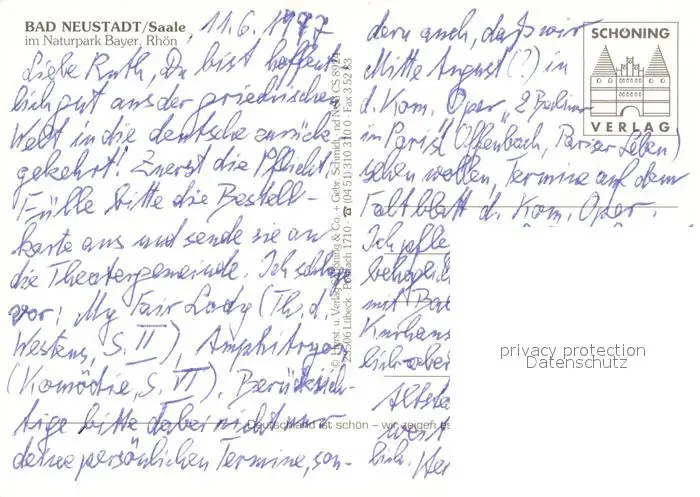 BAD NEUSTADT/Saale
im Naturpark Bayer. Rhön
11.6.1997
Liebe Ruth, Du bist hoffent-
lich gut aus der griechischen
Welt in die deutsche zurück-
gekehrt! Zuerst die Pflicht:
Fülle bitte die Bestell-
karte aus und sende sie an
die Theatergemeinde. Ich schlage
vor: My Fair Lady (Th. d.
Westens, S. II), Amphitryon
(Komödie, S. VI). Berücksich-
tige bitte dabei nicht nur
deine persönlichen Termine, son-
dern auch, daß wir
Mitte August (?) in
d. Kom. Oper "2 Berliner
in Paris" (Offenbach, Pariser Leben)
sehen wollen, Termine auf dem
Faltblatt d. Kom. Oper.
Ich
behaglich
mit
Kurhaus
lich
Altsta
weit
lich.
SCHÖNING
VERLAG
23506 Lübeck · Postfach 1710 · ☎ (0451) 310 310 0 · Fax 3 52 83
Deutschland ist schön – wir zeigen es
privacy protection
Datenschutz